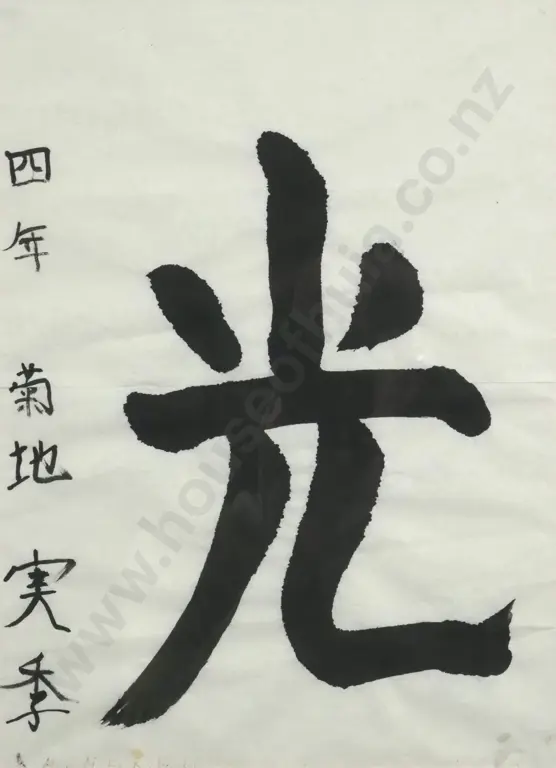 光
四年 菊地 実季
www.houseofhuia.co.nz